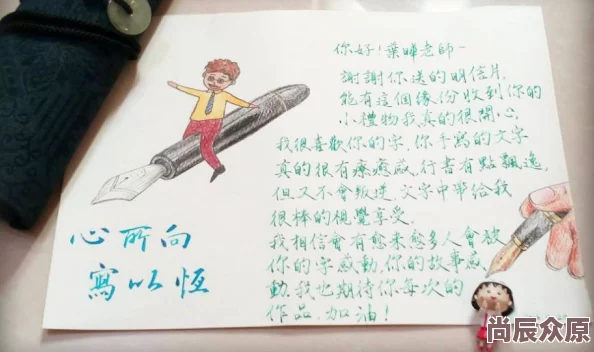 你好！葉曄老師－
謝謝你送的明信片，
能有這個緣份收到你的
小禮物我真的很開心，
我很喜歡你的字，你手寫的文字
真的很有療癒感，行書有點飄逸，
但又不會叛逆，文字中帶給我
很棒的視覺享受。
我相信會有愈來愈多人會被
你的字感動，你的故事感
動，我也期待你每次的
作品，加油！
心所向
寫以恆
尚辰众原